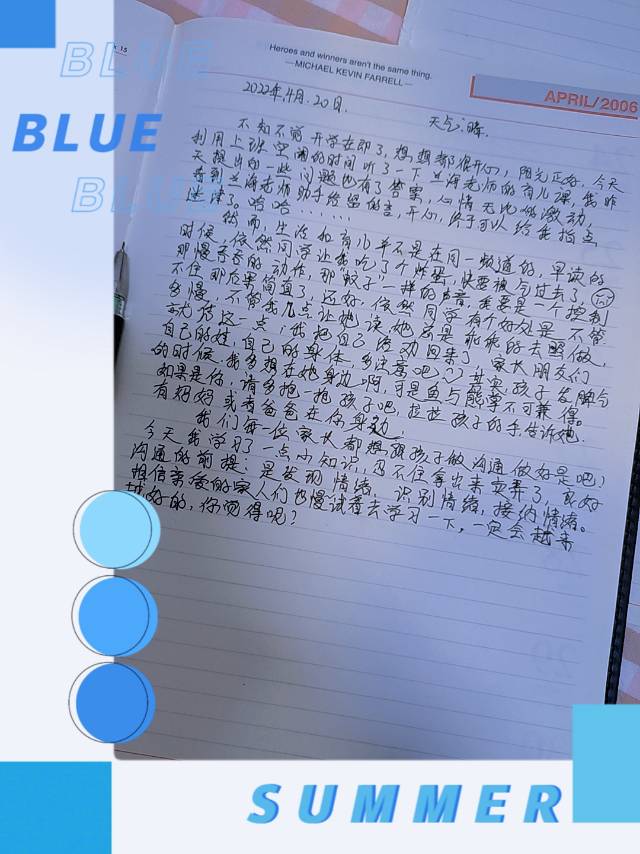 BLUE
BLUE
BLUE
15
Heroes and winners aren't the same thing.
—MICHAEL KEVIN FARRELL—
APRIL/2006
2022年4月20日. 天气:晴.
不知不觉开学在即了,想想都很开心,阳光正好,今天
利用上班空闲的时间听了一下兰海老师的育儿课,我昨
天提出的一些问题也有了答案,心情无比的激动,
看到兰海老师助手给留信息,开心,终于可以给我指点
迷津了,哈哈......
然而,生活和育儿并不是在同一频道的,早读的
时候,依然同学让我吃了个炸蛋,快要被气过去了,
那慢吞吞的动作,那蚊子一样的声音,我要是一个控制
不住那后果简直了,还好,依然同学有个好处,不管
多慢,不管我几点让她读她都是乖乖的去照做,
就凭这一点,我把自己活动回来了,家长朋友们
自己的娃,自己的身体,多注意吧,其实,孩子发脾气
的时候,我多想在她身边啊,可是鱼与熊掌不可兼得。
如果是你,请多抱一抱孩子吧,拉拉孩子的手告诉她:
有妈妈或者爸爸在你身边;
我们每一位家长都想跟孩子做沟通做好是吧,
今天我学习了一点小知识,忍不住拿出来卖弄了,良好
沟通的前提:是发现情绪,识别情绪,接纳情绪。
相信亲爱的家人们也慢试着去学习一下,一定会越来
越好的,你觉得呢?
SUMMER